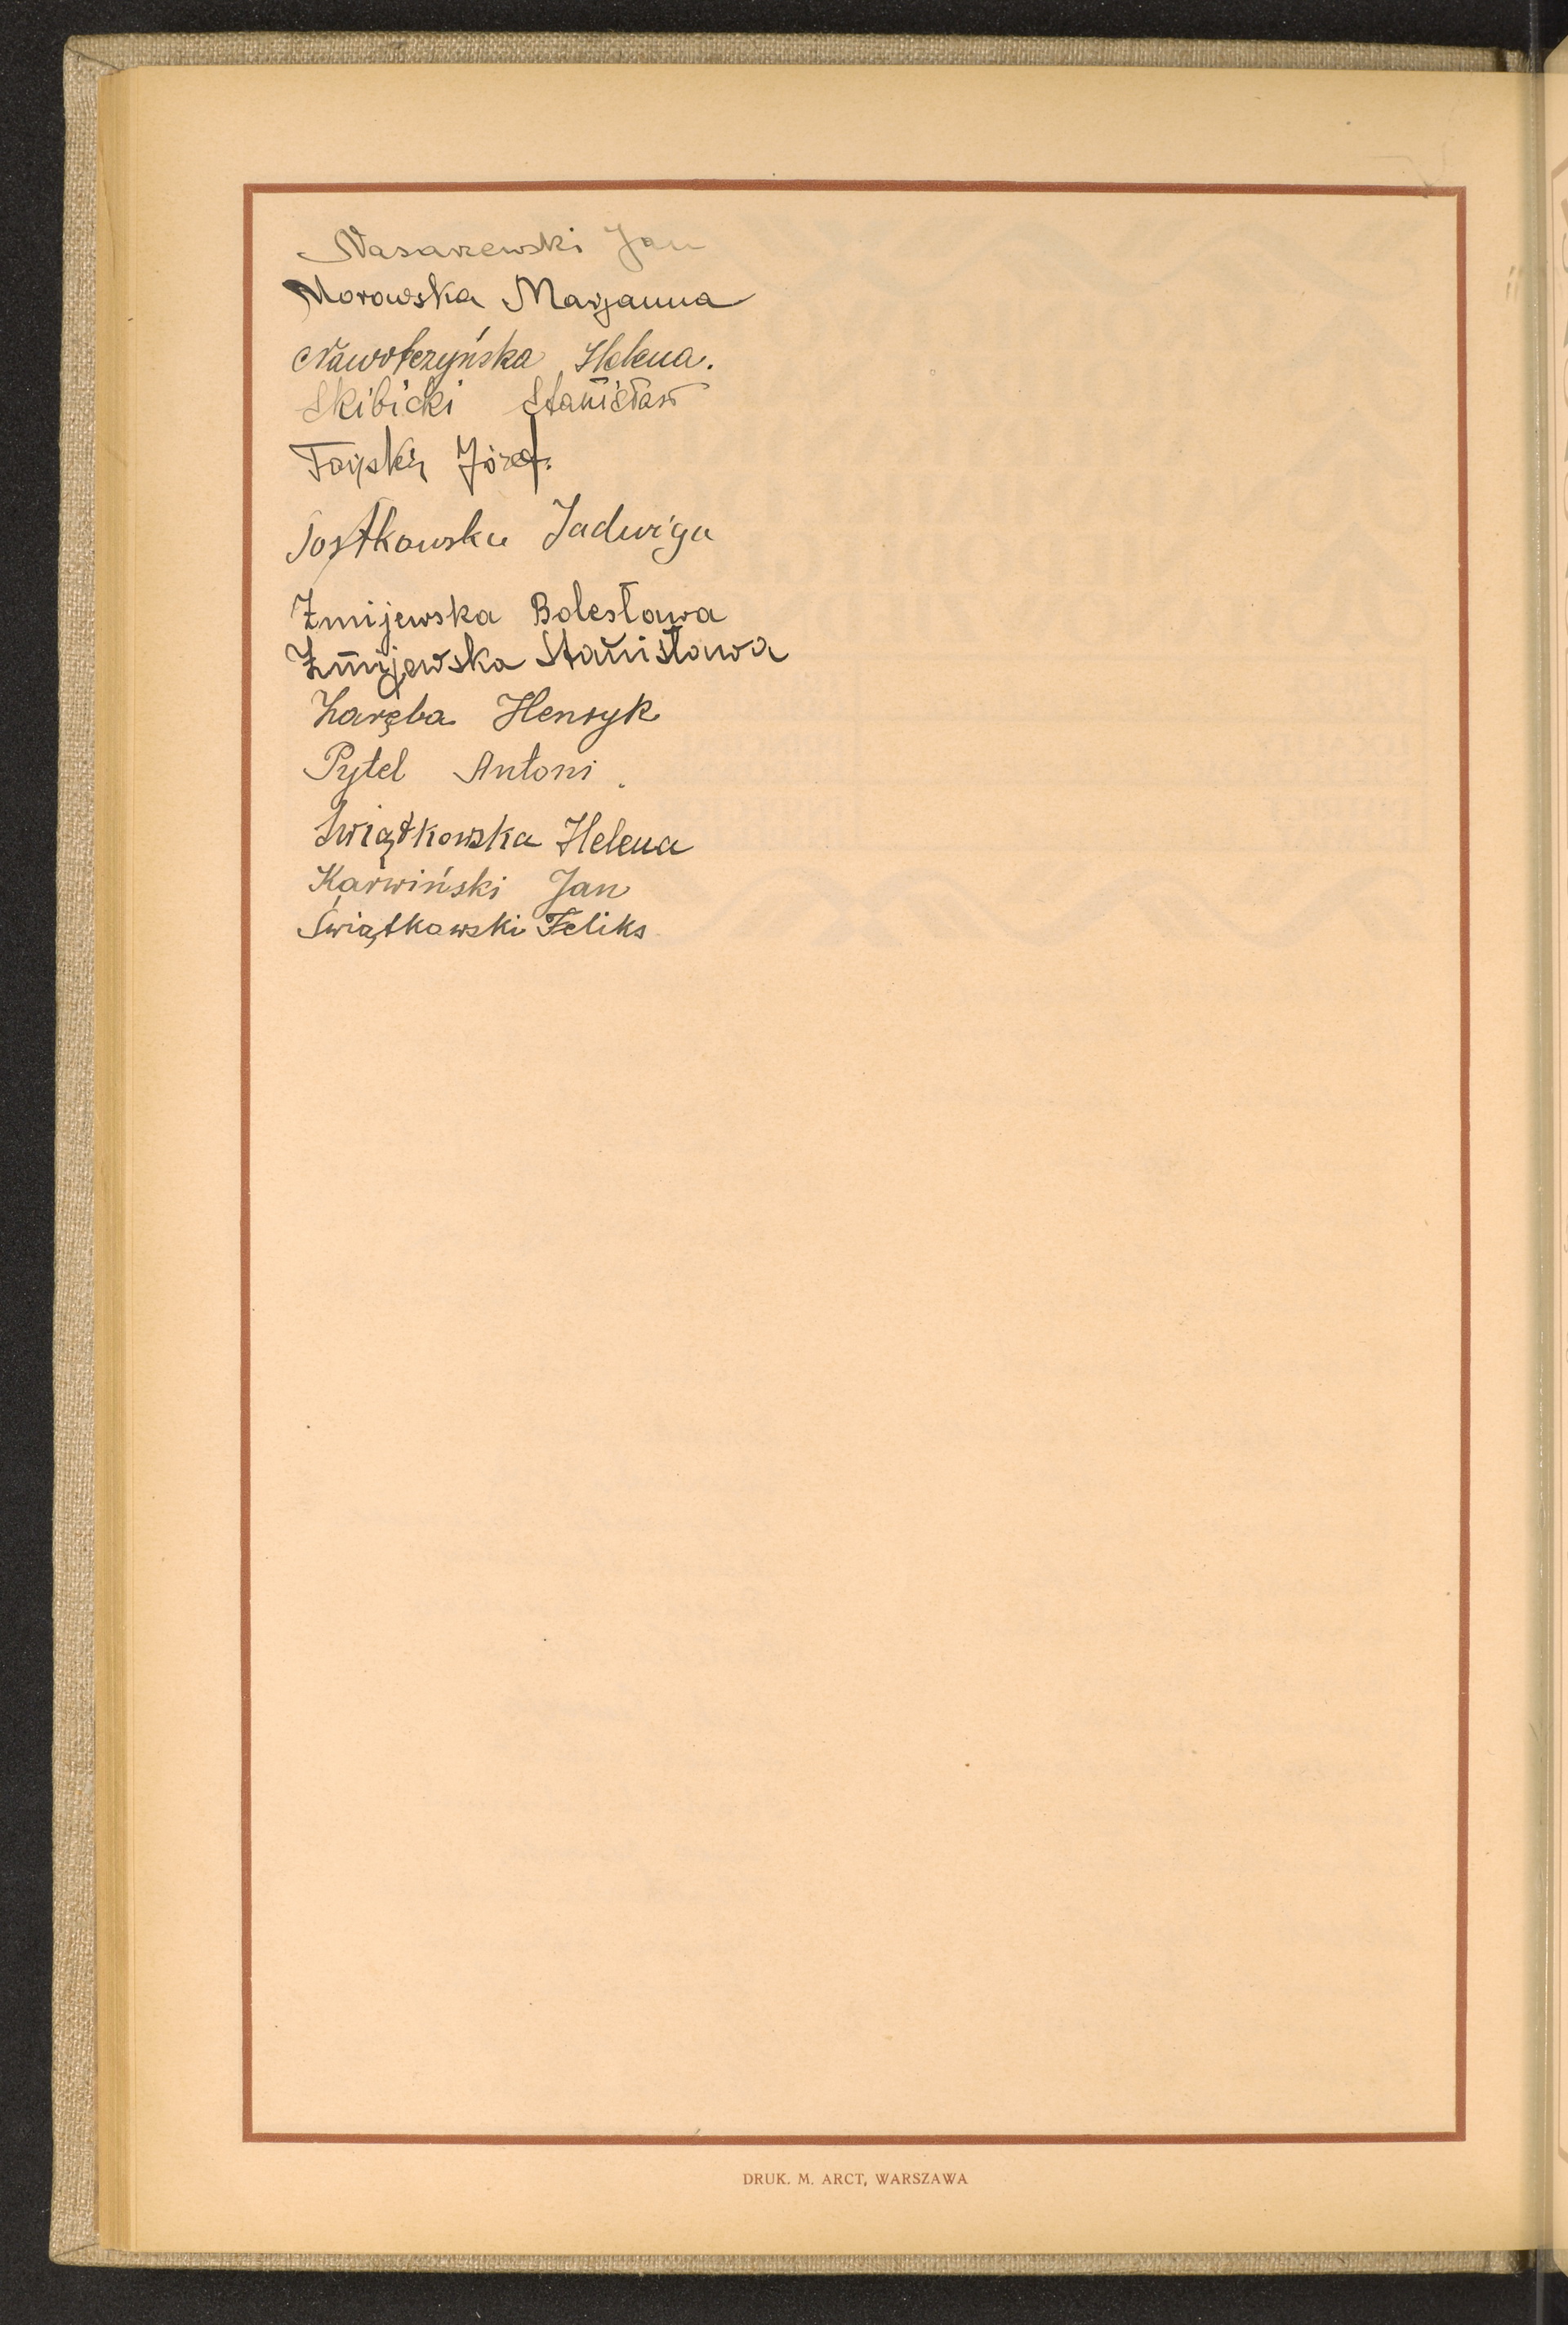 Nasarzewski Jan
Morawska Marjanna
Nawotczyńska Helena.
Skibicki Stanisław
Józef.
Jadwiga
Żmijewska Bolesława
Żmijewska Stanisława
Zaręba Henryk
Pytel Antoni
Świątkowska Helena
Karwiński Jan
Świątkowski Feliks
DRUK. M. ARCT, WARSZAWA